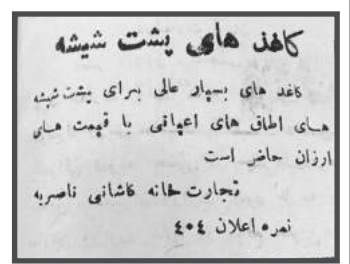 کاغذ های پشت شیشه
کاغد های بسیار عالی برای پشت شیشه
هـای اطاق های اعیانی با قیمت هـای
ارزان حاضر است
تجارت خانه کاشانی ناصریه
نمره اعلان ٤٠٤